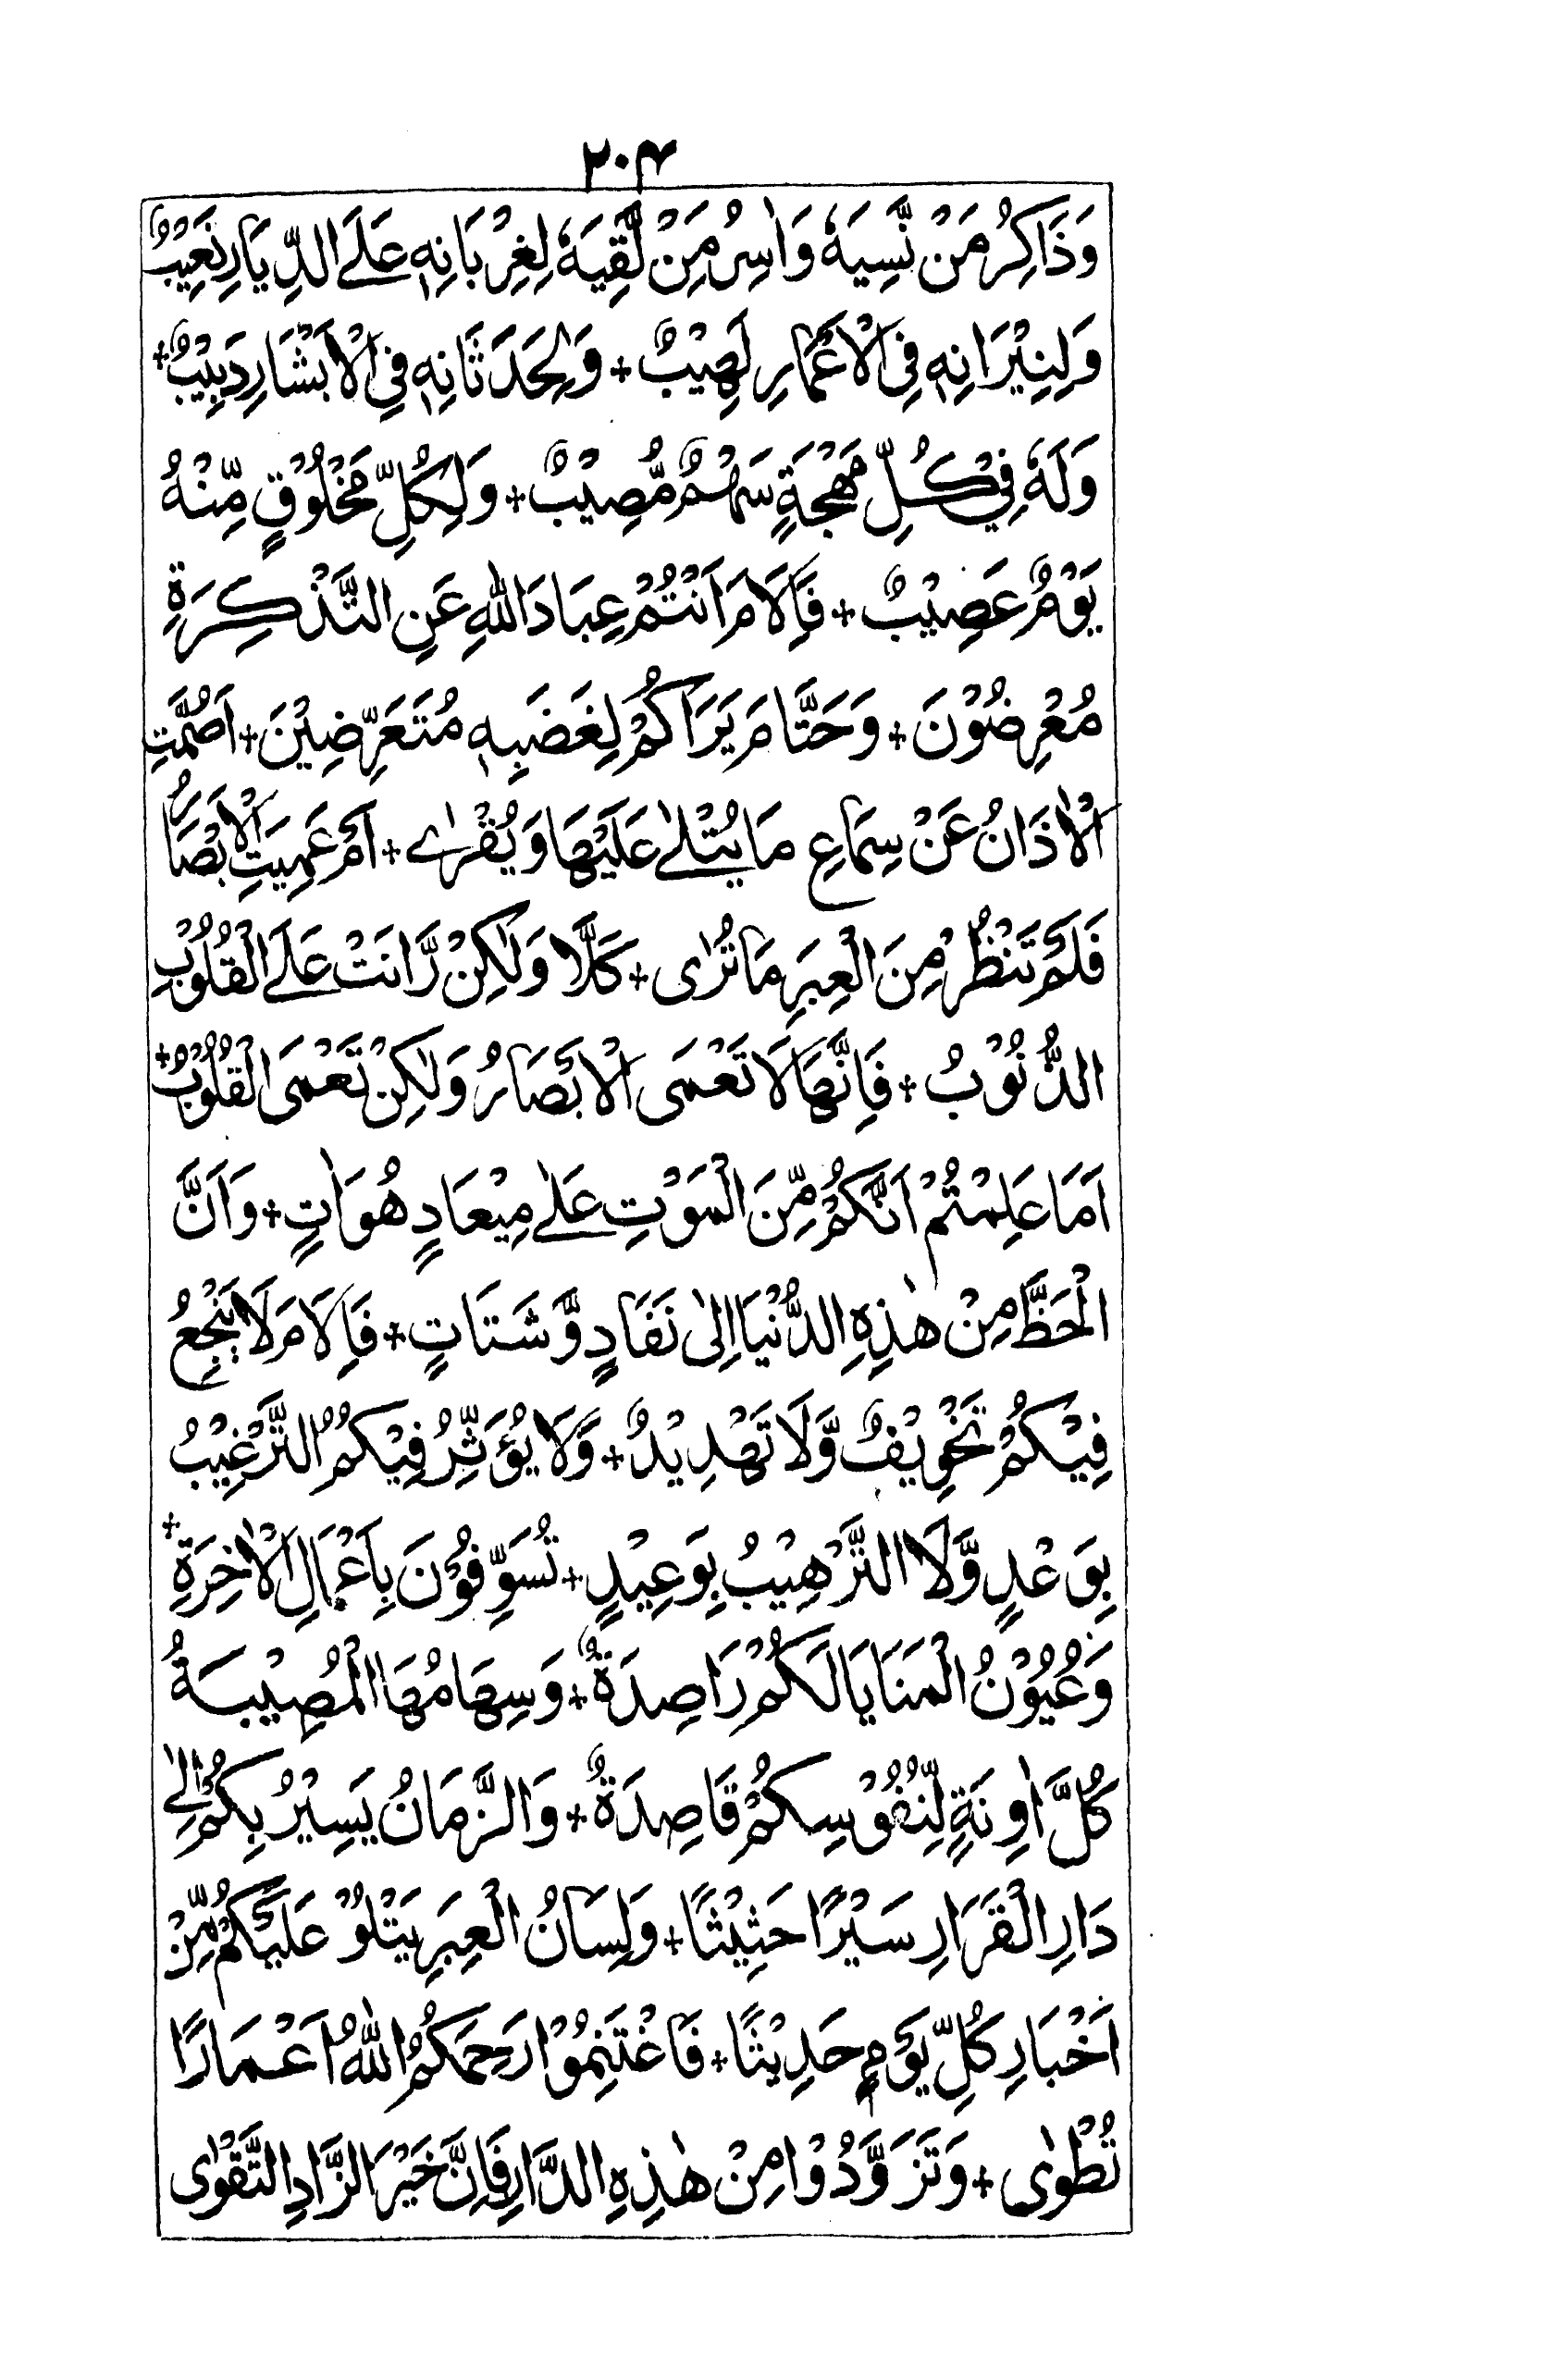 ۲۰۴
وَذَاكِرُ مَنْ نَّسِيَهٗ وَاٰسِرُ مَنْ لَّقِيَهٗ لِغِرْبَانِهٖ عَلَے الدِّيَارِ نَعِيْبٌ
وَلِنِيْرَانِهٖ فِی الْاَعْمَارِ لَهِيْبٌ + وَلِحَدَثَانِهٖ فِی الْاَبْشَارِ دَبِيْبٌ +
وَلَهٗ فِیْ كُلِّ مُهْجَةٍ سَهْمٌ مُّصِيْبٌ + وَلِكُلِّ مَخْلُوْقٍ مِّنْهُ
يَوْمٌ عَصِيْبٌ + فَاِلَامَ اَنْتُمْ عِبَادَ اللّٰهِ عَنِ التَّذْكِرَةِ
مُعْرِضُوْنَ + وَحَتَّامَ يَرَاكُمْ لِغَضَبِهٖ مُتَعَرِّضِيْنَ + اَصُمَّتِ
الْاٰذَانُ عَنْ سِمَاعِ مَا يُتْلٰے عَلَيْهَا وَيُقْرٰے + اَمْ عَمِيَتِ الْاَبْصَارُ
فَلَمْ تَنْظُرْ مِنَ الْعِبَرِ مَا تُرٰی + كَلَّا وَلٰكِنْ رَّانَتْ عَلَے الْقُلُوْبِ
الذُّنُوْبُ + فَاِنَّهَا لَا تَعْمَی الْاَبْصَارُ وَلٰكِنْ تَعْمَی الْقُلُوْبُ +
اَمَا عَلِمْتُمْ اَنَّكُمْ مِّنَ الْمَوْتِ عَلٰے مِيْعَادٍ هُوَ اٰتٍ + وَاَنَّ
الْحَظَّ مِنْ هٰذِهِ الدُّنْيَا اِلٰی نَفَادٍ وَّشَتَاتٍ + فَاِلَامَ لَا يَنْجِعُ
فِيْكُمْ تَخْوِيْفٌ وَّلَا تَهْدِيْدٌ + وَّلَا يُؤَثِّرُ فِيْكُمُ التَّرْغِيْبُ
بِوَعْدٍ وَّلَا التَّرْهِيْبُ بِوَعِيْدٍ + تُسَوِّفُوْنَ بِاَعْمَالِ الْاٰخِرَةِ +
وَعُيُوْنُ الْمَنَايَا لَكُمْ رَاصِدَةٌ + وَسِهَامُهَا الْمُصِيْبَةُ
كُلَّ اٰوِنَةٍ لِّنُفُوْسِكُمْ قَاصِدَةٌ + وَالزَّمَانُ يَسِيْرُ بِكُمْ اِلٰے
دَارِ الْقَرَارِ سَيْرًا حَثِيْثًا + وَلِسَانُ الْعِبَرِ يَتْلُوْ عَلَيْكُمْ مِّنْ
اَخْبَارِ كُلِّ يَوْمٍ حَدِيْثًا + فَاغْتَنِمُوْا رَحِمَكُمُ اللّٰهُ اَعْمَارًا
تُطْوٰی + وَتَزَوَّدُوْا مِنْ هٰذِهِ الدَّارِ فَاِنَّ خَيْرَ الزَّادِ التَّقْوٰی